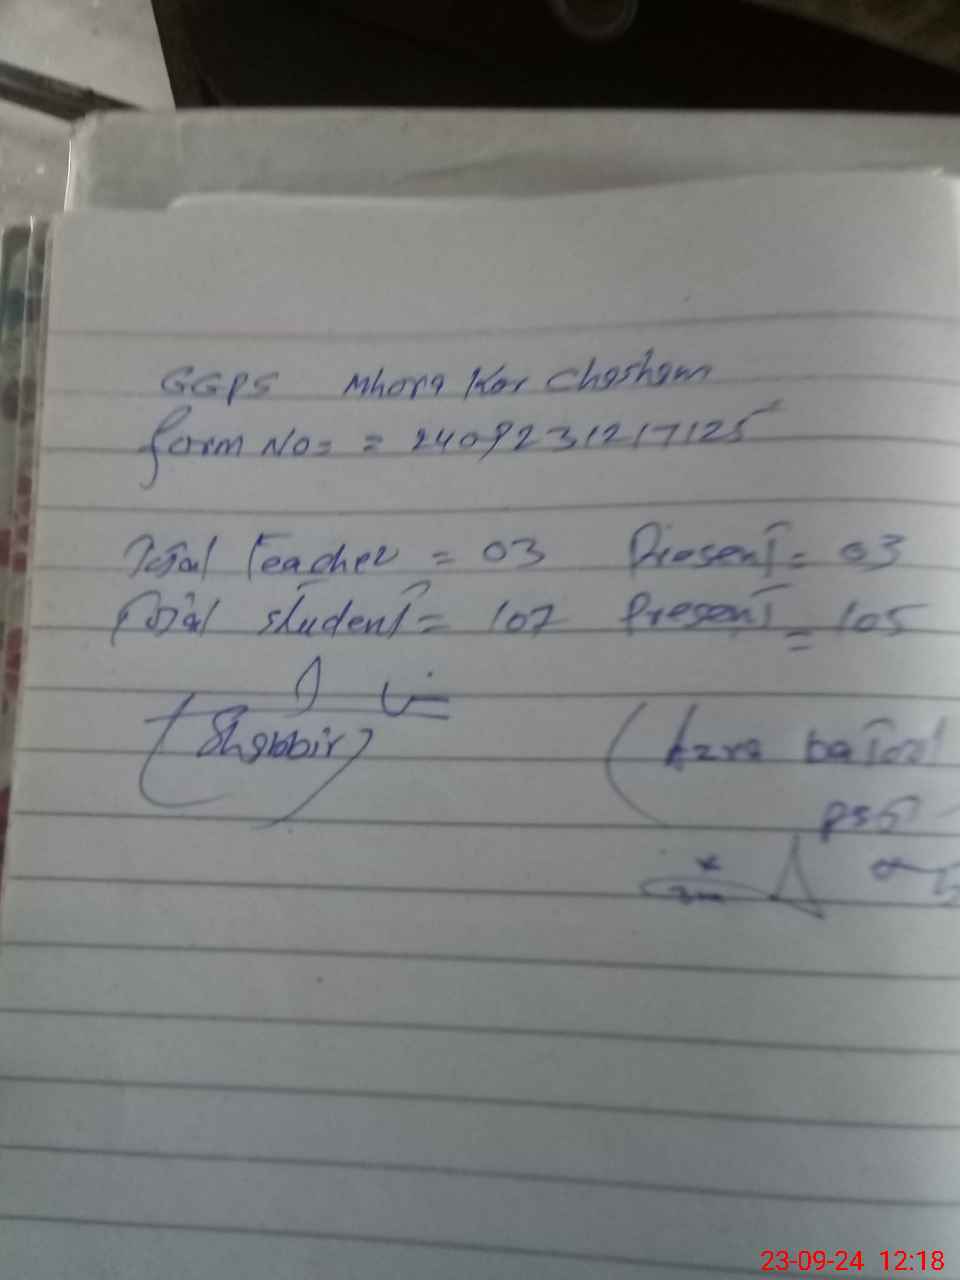 GGPS Mhora Kor Chasham
form No: = 2409231217125
Total Teacher = 03 Present = 03
Total student = 107 Present = 105
(Shabbir)
(Azra batool
PST
23-09-24 12:18